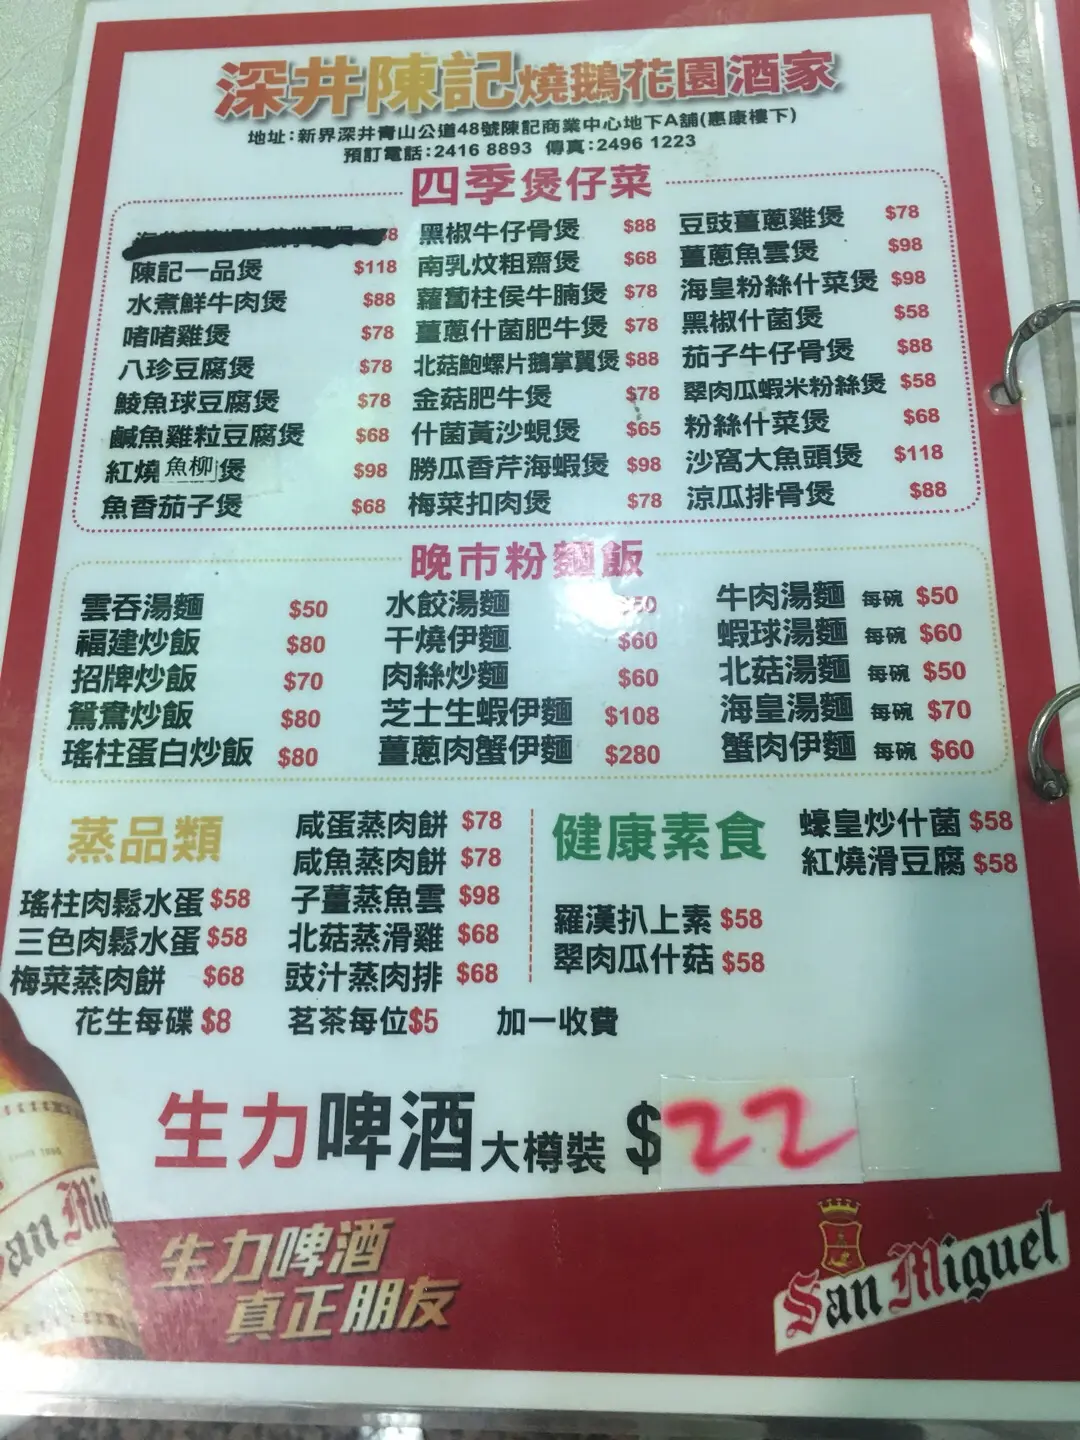 深井陳記燒鵝花園酒家
地址：新界深井青山公道48號陳記商業中心地下A舖(惠康樓下)
預訂電話：2416 8893 傳真：2496 1223
四季煲仔菜
陳記一品煲 $118
水煮鮮牛肉煲 $88
啫啫雞煲 $78
八珍豆腐煲 $78
鯪魚球豆腐煲 $78
鹹魚雞粒豆腐煲 $68
紅燒魚柳煲 $98
魚香茄子煲 $68
黑椒牛仔骨煲 $88
南乳炆粗齋煲 $68
蘿蔔柱侯牛腩煲 $78
薑蔥什菌肥牛煲 $78
北菇鮑螺片鵝掌翼煲 $88
金菇肥牛煲 $78
什菌黃沙蜆煲 $65
勝瓜香芹海蝦煲 $98
梅菜扣肉煲 $78
豆豉薑蔥雞煲 $78
薑蔥魚雲煲 $98
海皇粉絲什菜煲 $98
黑椒什菌煲 $58
茄子牛仔骨煲 $88
翠肉瓜蝦米粉絲煲 $58
粉絲什菜煲 $68
沙窩大魚頭煲 $118
涼瓜排骨煲 $88
晚市粉麵飯
雲吞湯麵 $50
福建炒飯 $80
招牌炒飯 $70
鴛鴦炒飯 $80
瑤柱蛋白炒飯 $80
水餃湯麵
干燒伊麵 $60
肉絲炒麵 $60
芝士生蝦伊麵 $108
薑蔥肉蟹伊麵 $280
牛肉湯麵 每碗 $50
蝦球湯麵 每碗 $60
北菇湯麵 每碗 $50
海皇湯麵 每碗 $70
蟹肉伊麵 每碗 $60
蒸品類
瑤柱肉鬆水蛋 $58
三色肉鬆水蛋 $58
梅菜蒸肉餅 $68
咸蛋蒸肉餅 $78
咸魚蒸肉餅 $78
子薑蒸魚雲 $98
北菇蒸滑雞 $68
豉汁蒸肉排 $68
健康素食
羅漢扒上素 $58
翠肉瓜什菇 $58
蠔皇炒什菌 $58
紅燒滑豆腐 $58
花生每碟 $8 茗茶每位$5 加一收費
生力啤酒大樽裝 $22
生力啤酒
真正朋友
San Miguel